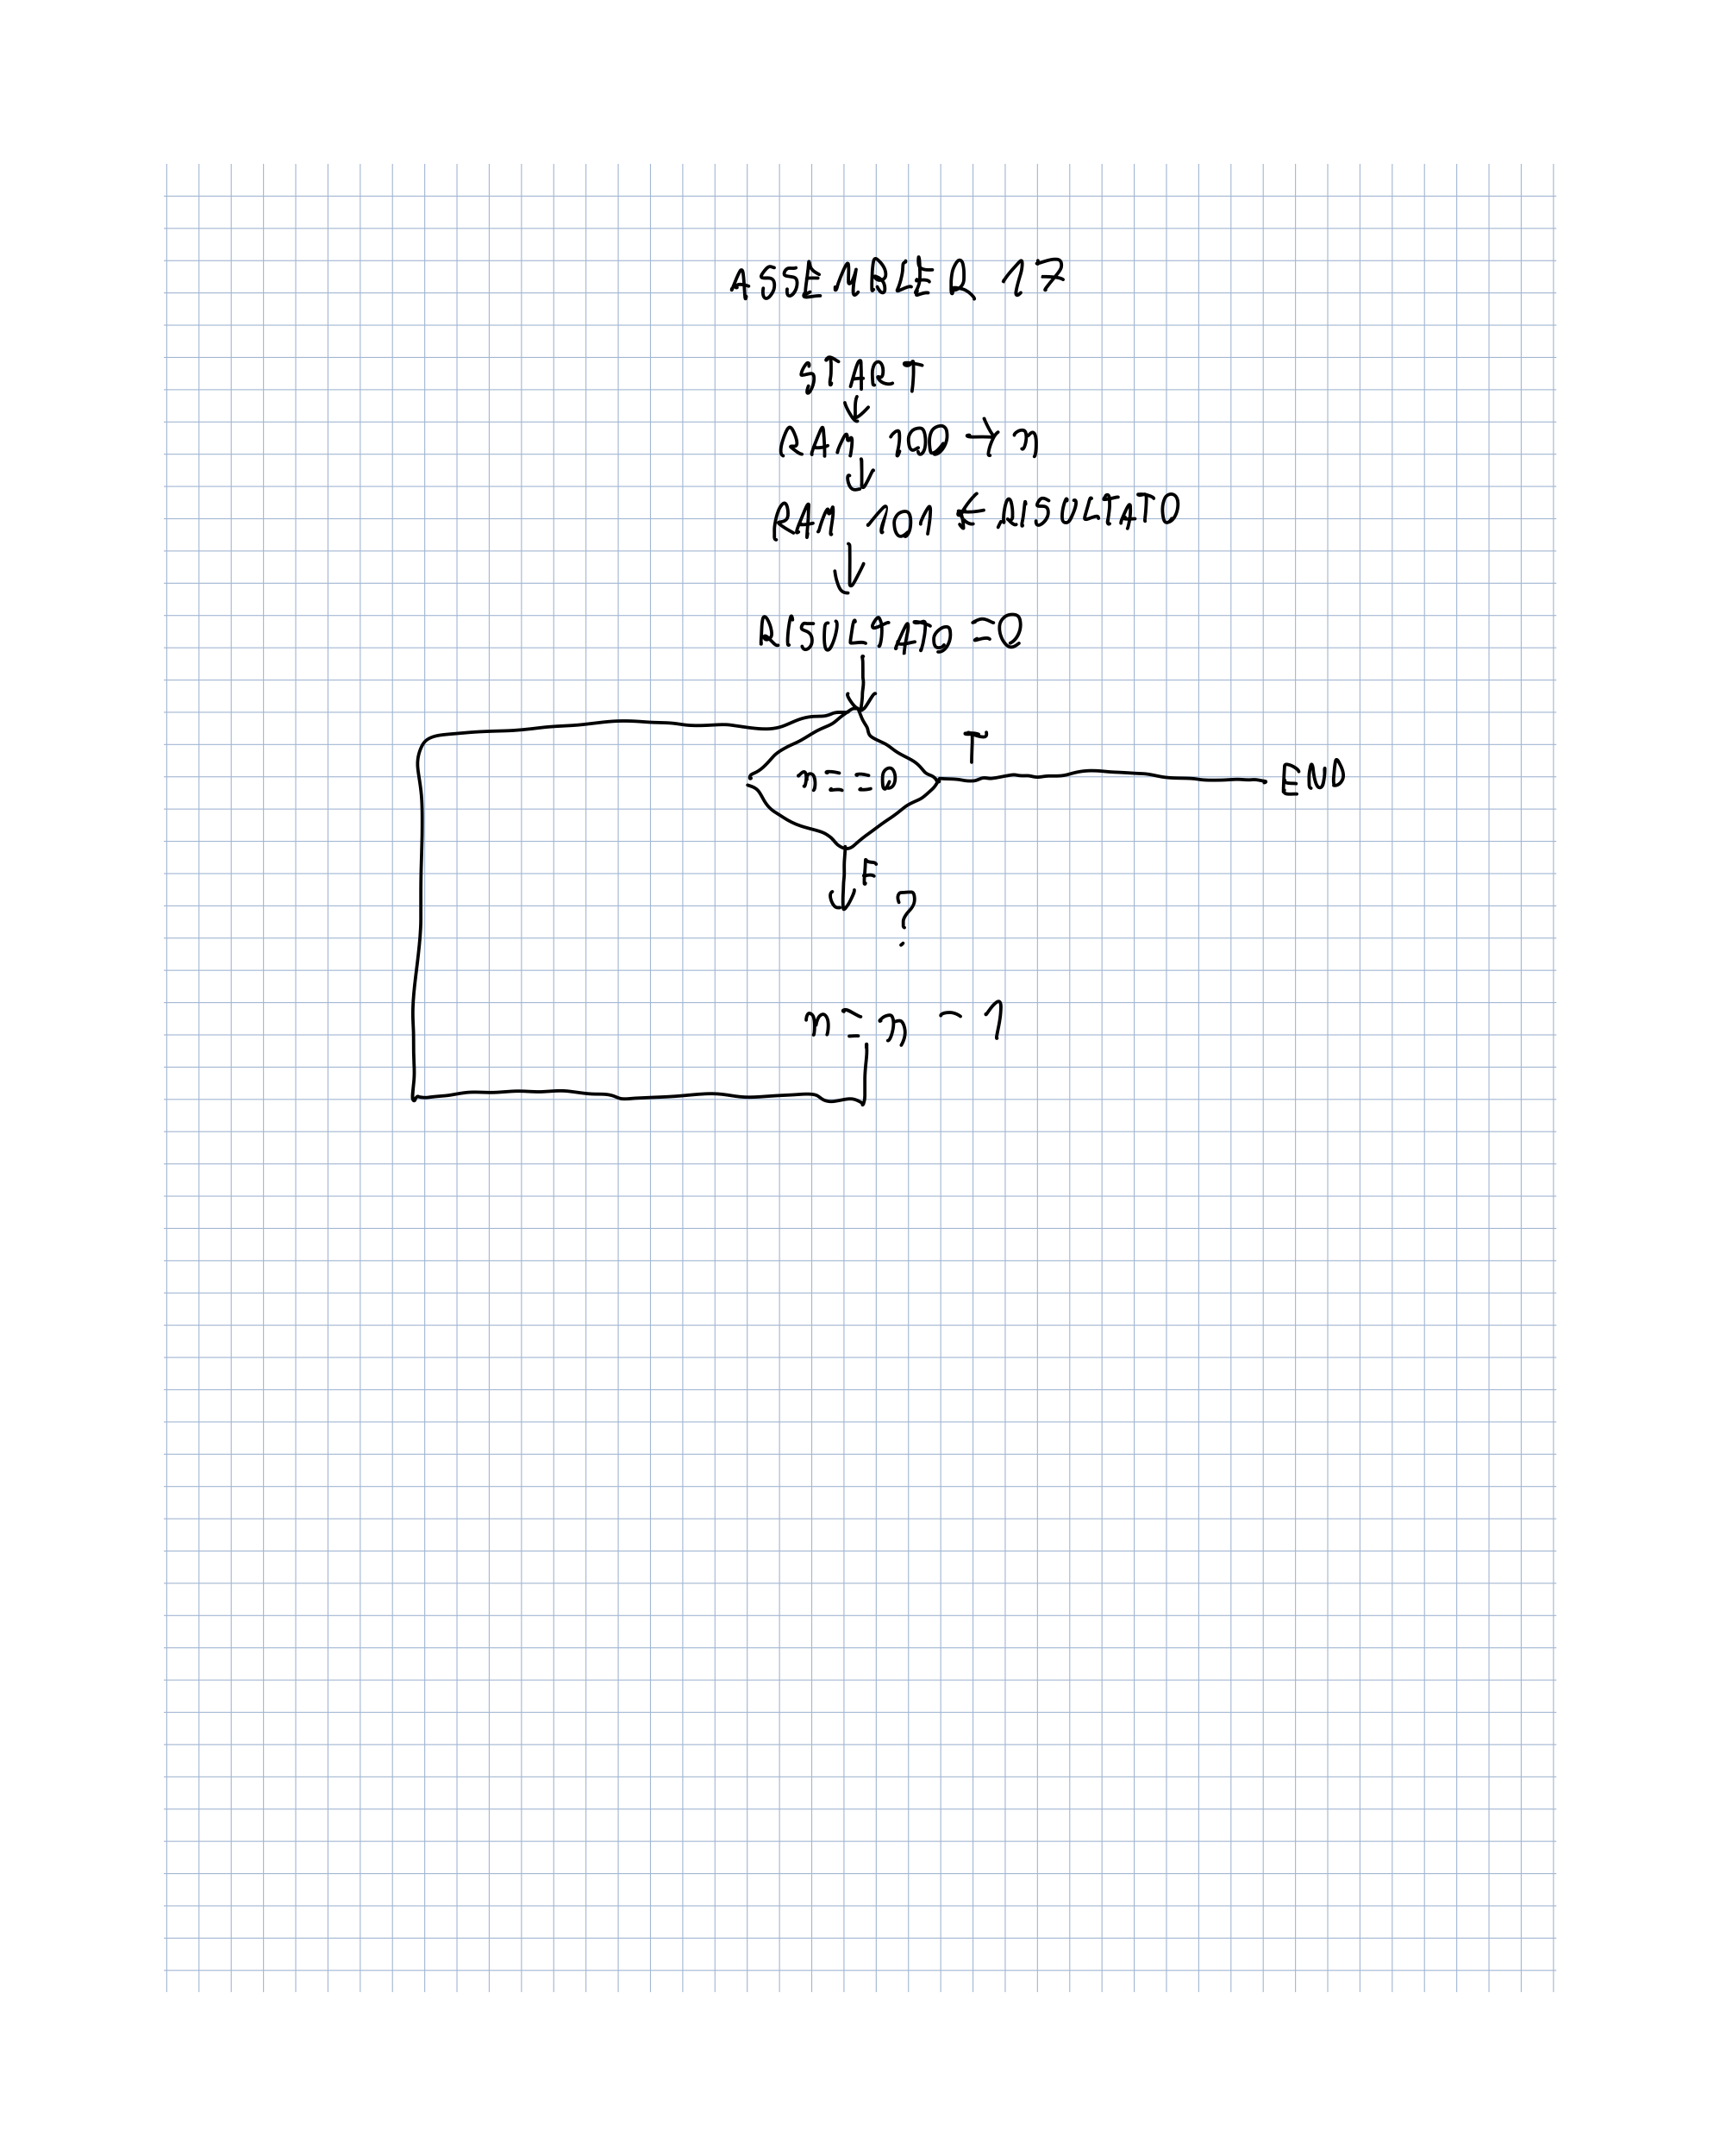 ASSEMBLER 17
START
RAM 100 → n
RAM 101 ← RISULTATO
RISULTATO = 0
n == 0
T
END
F
?
n = n - 1